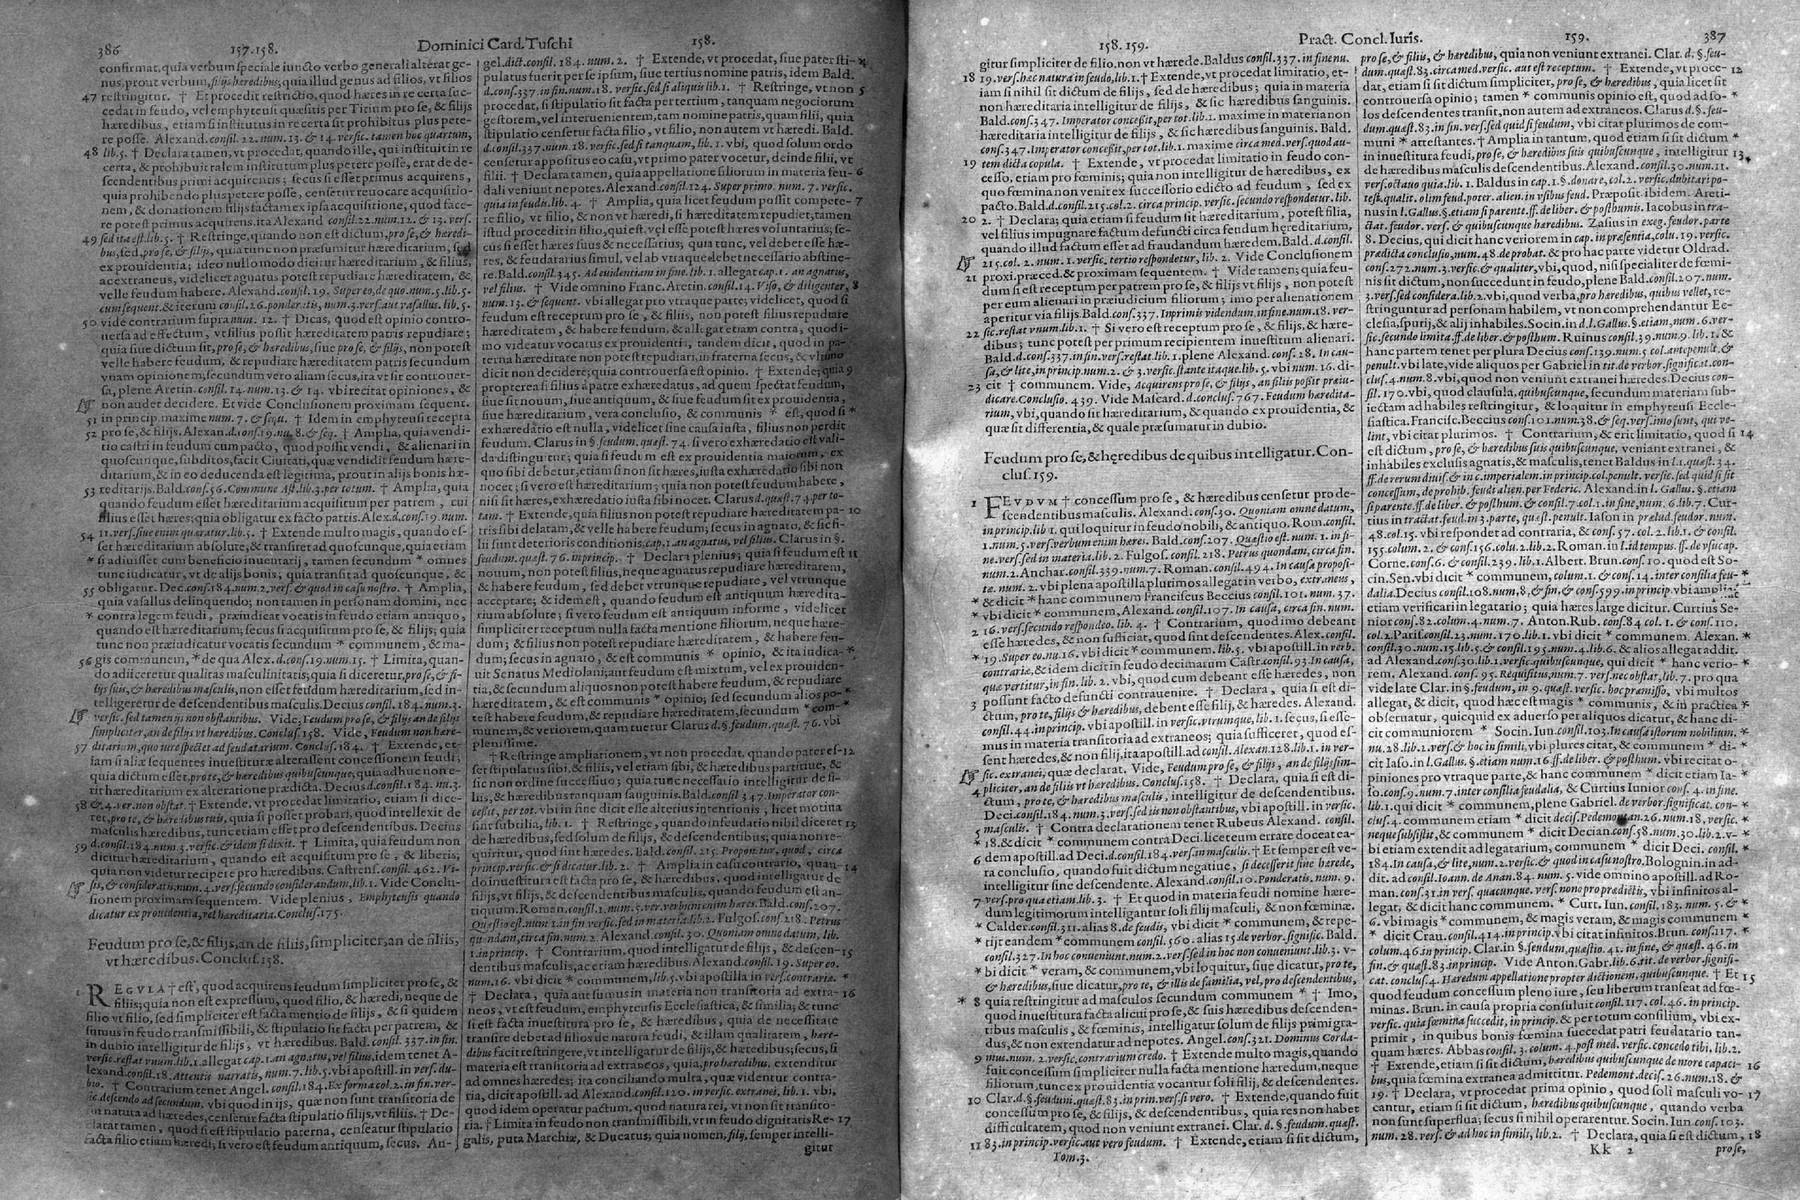 386 157.158. Dominici Card. Tuschi 158.
confirmat, quia verbum speciale iuncto verbo generali alterat ge-
nus, prout verbum, filijs heredibus, quia illud genus ad filios, vt filios
47 restringitur. † Et procedit restrictio, quod hæres in re certa suc-
cedat in feudo, vel emphyteusi quæsitis per Titium pro se, & filijs
hæredibus, etiam si institutus in re certa sit prohibitus plus pete-
re posse. Alexand. consil. 22. num. 13. & 14. versic. tamen hoc quartum,
48 lib. 5. † Declara tamen, vt procedat, quando ille, qui instituit in re
certa, & prohibuit talem institutum plus petere posse, erat de de-
scendentibus primi acquirentis; secus si esset primus acquirens,
quia prohibendo plus petere posse, censetur reuocare acquisitio-
nem, & donationem filijs factam ex ipsa acquisitione, quod face-
re potest primus acquirens. ita Alexand. consil. 22. num. 12. & 13. vers.
49 sed ita est. lib. 5. † Restringe, quando non est dictum, pro se, & hæredi-
bus, sed, pro se, & filijs, quia tunc non præsumitur hæreditarium, sed
ex prouidentia; ideo nullo modo dicitur hæreditarium, & filius,
ac extraneus, videlicet agnatus potest repudiare hæreditatem, &
velle feudum habere. Alexand. consil. 19. Super eo, de quo num. 5. lib. 5.
cum sequent. & iterum consil. 26. ponderatis, num. 3. vers. aut vasallus. lib. 5.
50 vide contrarium supra num. 12. † Dicas, quod est opinio contro-
uersa ad effectum, vt filius possit hæreditatem patris repudiare;
quia siue dictum sit, pro se, & hæredibus, siue pro se, & filijs, non potest
velle habere feudum, & repudiare hæreditatem patris secundum
vnam opinionem, secundum vero aliam secus, ita vt sit controuer-
sa, plene Aretin. consil. 14. num. 13. & 14. vbi recitat opiniones, &
non audet decidere. Et vide Conclusionem proximam sequent.
51 in princip. maxime num. 7. & sequ. † Idem in emphyteusi recepta
52 pro se, & filijs. Alexan. d. cons. 19. nu. 8. & seq. † Amplia, quia vendi-
tio castri in feudum cum pacto, quod possit vendi, & alienari in
quoscunque, subditos, facit Ciuitati, quæ vendidit feudum hære-
ditarium, & in eo deducenda est legitima, prout in alijs bonis hæ-
53 reditarijs. Bald. cons. 56. Commune Ast. lib. 3. per totum. † Amplia, quia
quando feudum esset hæreditarium acquisitum per patrem, cui
filius esset hæres; quia obligatur ex facto patris. Alex. d. cons. 19. num.
54 11. vers. sue enim quæratur. lib. 5. † Extende multo magis, quando es-
set hæreditarium absolute, & transiret ad quoscunque, quia etiam
* si adiuisset cum beneficio inuentarij, tamen secundum * omnes
tunc iudicatur, vt de alijs bonis, quia transit ad quoscunque, &
55 obligatur. Dec. cons. 184. num. 2. vers. & quod in casu nostro. † Amplia,
quia vasallus delinquendo; non tamen in personam domini, nec
* contra legem feudi, præiudicat vocatis in feudo etiam antiquo,
quando est hæreditarium; secus si acquisitum pro se, & filijs; quia
tunc non præiudicatur vocatis secundum * communem, & ma-
gis communem, * de qua Alex. d. cons. 19. num. 15. † Limita, quan-
56 do adijceretur qualitas masculinitatis; quia si diceretur, pro se, & fi-
lijs suis, & hæredibus masculis, non esset feudum hæreditarium, sed in-
telligeretur de descendentibus masculis. Decius consil. 184. num. 3.
versic. sed tamen ijs non obstantibus. Vide, Feudum pro se, & filijs an de filijs
simpliciter, an de filijs vt hæredib. Conclus. 158. Vide, Feudum non hære-
57 ditarium, quo iure spectet ad feudatarium. Conclus. 184. † Extende, et-
iam si aliæ sequentes inuestituræ alterassent concessionem feudi;
quia dictum esset, pro te, & hæredibus quibuscunque, quia adhuc non e-
rit hæreditarium ex alteratione prædicta. Decius d. consil. 184. nu. 3.
58 & 4. ver. non obstat. † Extende, vt procedat limitatio, etiam si dice-
ret, pro te, & hæredibus tuis, quia si posset probari, quod intellexit de
masculis hæredibus, tunc etiam esset pro descendentibus. Decius
59 d. consil. 184. num. 3. versic. & idem si dixit. † Limita, quia feudum non
dicitur hæreditarium, quando est acquisitum pro se, & liberis;
quia non videtur recipere pro hæredibus. Castrens. consil. 462. Vi-
sis, & consideratis. num. 4. vers. secundo considerandum, lib. 1. Vide Conclu-
sionem proximam sequentem. Vide plenius, Emphyteusis quando
dicatur ex prouidentia, vel hæreditaria. Conclus. 175.
Feudum pro se, & filijs, an de filiis, simpliciter, an de filiis,
vt hæredibus. Conclus. 158.
1 REGULA † est, quod acquirens feudum simpliciter pro se, &
filiis; quia non est expressum, quod filio, & hæredi, neque de
filio vt filio, sed simpliciter est facta mentio de filijs, & si quidem
sumus in feudo transmissibili, & stipulatio sit facta per patrem, &
in dubio intelligitur de filijs, vt hæredibus. Bald. consil. 337. in fin.
versic. restat vnum lib. 1. allegat cap. 1. an agnatus, vel filius. idem tenet A-
lexand. consil. 18. Attentis narratis, num. 7. lib. 5. vbi apostill. in vers. du-
bio. † Contrarium tenet Angel. consil. 184. Ex forma col. 2. in fin. ver-
sic. descendo ad secundum, vbi quod in ijs, quæ non sunt transitoria de
sui natura ad hæredes, censetur facta stipulatio filijs, vt filiis. † De-
clarat tamen, quod si est stipulatio paterna, censeatur stipulatio
facta filio etiam hæredi; si vero est feudum antiquum, secus. An-
gel. dict. consil. 184. num. 2. † Extende, vt procedat, siue pater sti- 4
pulatus fuerit per se ipsum, siue tertius nomine patris, idem Bald.
d. cons. 337. in fin. num. 18. versic. sed si aliquis lib. 1. † Restringe, vt non 5
procedat, si stipulatio sit facta per tertium, tanquam negociorum
gestorem, vel interuenientem, tam nomine patris, quam filii, quia
stipulatio censetur facta filio, vt filio, non autem vt hæredi. Bald.
d. cons. 337. num. 18. versic. sed si tanquam, lib. 1. vbi, quod solum ordo
censetur appositus eo casu, vt primo pater vocetur, deinde filii, vt
filii. † Declara tamen, quia appellatione filiorum in materia feu- 6
dali veniunt nepotes. Alexand. consil. 124. Super primo. num. 7. versic.
quia in feudis. lib. 4. † Amplia, quia licet feudum possit compete- 7
re filio, vt filio, & non vt hæredi, si hæreditatem repudiet, tamen
istud procedit in filio, qui est, vel esse potest hæres voluntarius, se-
cus si esset hæres suus & necessarius; quia tunc, vel debet esse hæ-
res, & feudatarius simul, vel ab vtraque debet necessario abstine-
re. Bald. consil. 345. Ad euidentiam in fine. lib. 1. allegat cap. 1. an agnatus,
vel filius. † Vide omnino Franc. Aretin. consil. 14. Viso, & diligenter, 8
num. 13. & sequent. vbi allegat pro vtraque parte; videlicet, quod si
feudum est receptum pro se, & filiis, non potest filius repudiare
hæreditatem, & habere feudum, & allegat etiam contra, quod i-
mo videatur vocatus ex prouidentia, tandem dicit, quod in pa-
terna hæreditate non potest repudiari, in fraterna secus, & vltimo
dicit non decidere; quia controuersa est opinio. † Extende; quia 9
propterea si filius à patre exhæredatus, ad quem spectat feudum,
siue sit nouum, siue antiquum, & siue feudum sit ex prouidentia,
siue hæreditarium, vera conclusio, & communis * est, quod si *
exhæredatio est nulla, videlicet sine causa iusta, filius non perdit
feudum. Clarus in § feudum. quæst. 74. si vero exhæredatio est vali-
da distinguitur; quia si feudum est ex prouidentia maiorum, ex
quo sibi debetur, etiam si non sit hæres, iusta exhæredatio sibi non
nocet; si vero est hæreditarium; quia non potest feudum habere,
nisi sit hæres, exhæredatio iusta sibi nocet. Clarus d. quæst. 74. per to-
tam. † Extende, quia filius non potest repudiare hæreditatem pa- 10
tris sibi delatam, & velle habere feudum; secus in agnato, & sic fi-
lii sunt deterioris conditionis. cap. 1. an agnatus, vel filius. Clarus in §.
feudum. quæst. 76. in princip. † Declara plenius; quia si feudum est 11
nouum, non potest filius, neque agnatus repudiare hæreditatem,
& habere feudum, sed debet vtrunque repudiare, vel vtrunque
acceptare; & idem est, quando feudum est antiquum hæredita-
rium absolute; si vero feudum est antiquum informe, videlicet
simpliciter receptum nulla facta mentione filiorum, neque hære-
dum; & filius non potest repudiare hæreditatem, & habere feu-
dum; secus in agnato, & est communis * opinio, & ita iudica- *
uit Senatus Mediolani; aut feudum est mixtum, vel ex prouiden-
tia, & secundum aliquos non potest habere feudum, & repudiare
hæreditatem, & est communis * opinio; sed secundum alios po- *
test habere feudum, & repudiare hæreditatem, secundum * com- *
munem, & veriorem, quam tuetur Clarus d. § feudum. quæst. 76. vbi
plenissime.
† Restringe ampliationem, vt non procedat, quando pater es- 12
set stipulatus sibi, & filiis, vel etiam sibi, & hæredibus partitiue, &
sic non ordine successiuo; quia tunc necessario intelligitur de fi-
liis, & hæredibus tanquam sanguinis. Bald. consil. 347. Imperator con-
cessit, per tot. vbi in fine dicit esse alterius intentionis, licet motiua
sint subtilia, lib. 1. † Restringe, quando in feudatio nihil diceret 13
de hæredibus, sed solum de filijs, & descendentibus; quia non re-
quiritur, quod sint hæredes. Bald. consil. 215. Proponitur, quod, circa
princip. versic. & si dicatur. lib. 2. † Amplia in casu contrario, quan- 14
do inuestitura est facta pro se, & hæredibus, quod intelligatur de
filijs, vt filijs, & descendentibus masculis, quando feudum est an-
tiquum. Roman. consil. 1. num. 5. ver. verbum enim hæres. Bald. cons. 207.
Quæstio est. num. 1. in fin. versic. sed in materia. lib. 2. Fulgos. cons. 218. Petrus
quondam, circa fin. num. 2. Alexand. consil. 30. Quoniam omne datum, lib.
1. in princip. † Contrarium, quod intelligatur de filijs, & descen- 15
dentibus masculis, ac etiam hæredibus. Alexand. consil. 19. Super eo.
num. 16. vbi dicit * communem, lib. 5. vbi apostilla in vers. contraria. *
† Declara, quia aut sumus in materia non transitoria ad extra- 16
neos, vt est feudum, emphyteusis Ecclesiastica, & similia; & tunc
si est facta inuestitura pro se, & hæredibus, quia de necessitate
transire debet ad filios de natura feudi, & illam qualitatem, hære-
dibus facit restringere, vt intelligatur de filijs, & hæredibus; secus, si
materia est transitoria ad extraneos, quia, pro heredibus, extenditur
ad omnes hæredes; ita conciliando multa, quæ videntur contra-
ria, dicit apostill. ad Alexand. consil. 120. in versic. extranei, lib. 1. vbi,
quod idem operatur pactum, quod natura rei, vt non sit transito-
ria. † Limita in feudo non transmissibili, vt in feudo dignitatis Re- 17
galis, puta Marchiæ, & Ducatus; quia nomen, filij, semper intelli-
gitur
158. 159. Pract. Concl. Iuris. 159. 387
gitur simpliciter de filio, non vt hærede. Baldus consil. 337. in fine nu.
18 19. vers. hac natura in feudo, lib. 1. † Extende, vt procedat limitatio, et-
iam si nihil sit dictum de filijs, sed de hæredibus; quia in materia
non hæreditaria intelligitur de filijs, & sic hæredibus sanguinis.
Bald. cons. 347. Imperator concessit, per tot. lib. 1. maxime in materia non
hæreditaria intelligitur de filijs, & sic hæredibus sanguinis. Bald.
cons. 347. Imperator concessit, per tot. lib. 1. maxime circa med. vers. quod au-
19 tem dicta copula. † Extende, vt procedat limitatio in feudo con-
cesso, etiam pro fœminis; quia non intelligitur de hæredibus, ex
quo fœmina non venit ex successorio edicto ad feudum, sed ex
pacto. Bald. d. consil. 215. col. 2. circa princip. versic. secundo respondetur. lib.
20 2. † Declara; quia etiam si feudum sit hæreditarium, potest filia,
vel filius impugnare factum defuncti circa feudum hęreditarium,
quando illud factum esset ad fraudandum hæredem. Bald. d. consil.
215. col. 2. num. 1. versic. tertio respondetur, lib. 2. Vide Conclusionem
21 proxi. præced. & proximam sequentem. † Vide tamen; quia feu-
dum si est receptum per patrem pro se, & filijs vt filijs, non potest
per eum alienari in præiudicium filiorum; imo per alienationem
aperitur via filijs. Bald. cons. 337. Inprimis videndum. in fine num. 18. ver-
22 sic. restat vnum lib. 1. † Si vero est receptum pro se, & filijs, & hære-
dibus; tunc potest per primum recipientem inuestitum alienari.
Bald. d. cons. 337. in fin. vers. restat. lib. 1. plene Alexand. cons. 28. In cau-
sa, & lite, in princip. num. 2. & 3. versic. stante itaque. lib. 5. vbi num. 16. di-
23 cit † communem. Vide, Acquirens pro se, & filijs, an filiis possit præiu-
dicare. Conclusio. 439. Vide Mascard. d. conclus. 767. Feudum heredita-
rium, vbi, quando sit hæreditarium, & quando ex prouidentia, &
quæ sit differentia, & quale præsumatur in dubio.
Feudum pro se, & hęredibus de quibus intelligatur. Con-
clus. 159.
1 FEUDUM † concessum pro se, & hæredibus censetur pro de-
scendentibus masculis. Alexand. cons. 30. Quoniam omne datum,
in princip. lib. 1. qui loquitur in feudo nobili, & antiquo. Rom. consil.
1. num. 5. vers. verbum enim hæres. Bald. cons. 207. Quæstio est. num. 1. in fi-
ne. vers. sed in materia. lib. 2. Fulgos. consil. 218. Petrus quondam, circa fin.
num. 2. Anchar. consil. 339. num. 7. Roman. consil. 494. In causa proposi-
tæ. num. 2. vbi plena apostilla plurimos allegat in verbo, extraneus,
* & dicit * hanc communem Franciscus Beccius consil. 101. num. 37.
* vbi dicit * communem, Alexand. consil. 107. In causa, circa fin. num.
2 16. vers. secundo respondeo. lib. 4. † Contrarium, quod imo debeant
esse hæredes, & non sufficiat, quod sint descendentes. Alex. consil.
* 19. Super eo. nu. 16. vbi dicit * communem. lib. 5. vbi apostill. in verb.
contraria, & idem dicit in feudo decimarum Castr. consil. 93. In causa,
quæ vertitur, in fin. lib. 2. vbi, quod cum debeant esse hæredes, non
possunt facto defuncti contrauenire. † Declara, quia si est di-
3 ctum, pro te, filijs & hæredibus, debent esse filij, & hæredes. Alexand.
consil. 44. in princip. vbi apostill. in versic. vtrumque, lib. 1. secus, si esse-
mus in materia transitoria ad extraneos; quia sufficeret, quod es-
sent hæredes, & non filij, ita apostill. ad consil. Alexan. 128. lib. 1. in ver-
sic. extranei, quæ declarat. Vide, Feudum pro se, & filijs, an de filijs sim-
pliciter, an de filiis vt hæredib. Conclus. 158. † Declara, quia si est di-
4 ctum, pro te, & hæredibus masculis, intelligitur de descendentibus.
Deci. consil. 184. num. 3. vers. sed iis non obstantibus, vbi apostill. in versic.
5 masculis. † Contra declarationem tenet Rubeus Alexand. consil.
* 18. & dicit * communem contra Deci. licet eum errare doceat ea-
6 dem apostill. ad Deci. d. consil. 184. vers. in masculis. † Et semper est ve-
ra conclusio, quando fuit dictum negatiue, si decesserit sine hærede,
intelligitur sine descendente. Alexand. cons. 10. Ponderatis. num. 9.
7 vers. pro qua etiam. lib. 3. † Et quod in materia feudi nomine hære-
dum legitimorum intelligantur soli filij masculi, & non fœminæ.
* Calder. cons. 311. alias 8. de feudis, vbi dicit * communem, & repe-
* rijt eandem * communem consil. 560. alias 15. de verbor. signific. Bald.
consil. 327. In hoc conueniunt. num. 2. vers. sed in hoc non conueniunt. lib. 3. v-
* bi dicit * veram, & communem, vbi loquitur, siue dicatur, pro te,
& hæredibus, siue dicatur, pro te, & illis de familia, vel, pro descendentibus,
* 8 quia restringitur ad masculos secundum communem * † Imo,
quod inuestitura facta alicui pro se, & suis hæredibus descenden-
tibus masculis, & fœminis, intelligatur solum de filijs primi gra-
dus, & non extendatur ad nepotes. Angel. cons. 321. Dominus Corda-
9 mus. num. 2. versic. contrarium credo. † Extende multo magis, quando
fuit concessum simpliciter nulla facta mentione hæredum, neque
filiorum, tunc ex prouidentia vocantur soli filij, & descendentes.
10 Clar. d. §. feudum. quæst. 83. in prin. vers. si vero. † Extende, quando fuit
concessum pro se, & filijs, & descendentibus, quia res non habet
difficultatem, quod non veniunt extranei. Clar. d. §. feudum. quæst.
11 83. in princip. versic. aut vero feudum. † Extende, etiam si sit dictum,
Tom. 3.
pro se, & filiis, & hæredibus, quia non veniunt extranei. Clar. d. §. feu-
dum. quæst. 83. circa med. versic. aut est receptum. † Extende, vt proce- 12
dat, etiam si sit dictum simpliciter, pro se, & hæredibus, quia licet sit
controuersa opinio; tamen * communis opinio est, quod ad so- *
los descendentes transit, non autem ad extraneos. Clarus d. §. feu-
dum. quæst. 83. in fin. vers. sed quid si feudum, vbi citat plurimos de com-
muni * attestantes. † Amplia in tantum, quod etiam si sit dictum *
in inuestitura feudi, pro se, & hæredibus suis quibuscunque, intelligitur 13
de hæredibus masculis descendentibus. Alexand. consil. 30. num. 11.
vers. octauo quia. lib. 1. Baldus in cap. 1. §. donare, col. 2. versic. dubitari po-
test. qualit. olim feud. poter. alien. in vsibus feud. Præposit. ibidem. Areti-
nus in l. Gallus. §. etiam si parente. ff. de liber. & posthumis. Iacobus in tra-
ctat. feudor. vers. & quibuscunque hæredibus. Zasius in exeg. feudor. parte
8. Decius, qui dicit hanc veriorem in cap. in præsentia, colu. 19. versic.
prædicta conclusio, num. 48. de probat. & pro hac parte videtur Oldrad.
cons. 272. num. 3. versic. & qualiter, vbi, quod, nisi specialiter de fœmi-
nis sit dictum, non succedunt in feudo, plene Bald. consil. 207. num.
3. vers. sed considera. lib. 2. vbi, quod verba, pro hæredibus, quibus vellet, re-
stringuntur ad personam habilem, vt non comprehendantur Ec-
clesia, spurij, & alij inhabiles. Socin. in d. l. Gallus. §. etiam, num. 6. ver-
sic. secundo limita. ff. de liber. & posthum. Ruinus consil. 39. num. 9. lib. 1. &
hanc partem tenet per plura Decius cons. 139. num. 5. col. antepenult. &
penult. vbi late, vide alios per Gabriel in tit. de verbor. significat. con-
clus. 4. num. 8. vbi, quod non veniunt extranei hæredes. Decius con-
sil. 170. vbi, quod clausula, quibuscunque, secundum materiam sub-
iectam ad habiles restringitur, & loquitur in emphyteusi Eccle-
siastica. Francisc. Beccius cons. 101. num. 38. & seq. vers. imo sunt, qui ve-
lint, vbi citat plurimos. † Contrarium, & erit limitatio, quod si 14
est dictum, pro se, & hæredibus quibuscunque, veniant extranei, &
inhabiles exclusis agnatis, & masculis, tenet Baldus in l. 1. quæst. 34.
ff. de rerum diuis. & in c. imperialem. in princip. col. penult. versic. sed quid si sit
concessum, de prohib. feud. alien. per Federic. Alexand. in l. Gallus. §. etiam
si parente. ff. de liber. & posthum. & consil. 7. col. 1. in fine, num. 6. lib. 7. Cur-
tius in tractat. feud. in 3. parte, quæst. penult. Iason in prælud. feudor. num.
48. col. 15. vbi respondet ad contraria, & cons. 57. col. 2. lib. 1. & consil.
155. colum. 2. & cons. 156. colu. 2. lib. 2. Roman. in l. id tempus. ff. de vsucap.
Corne. cons. 6. & consil. 239. lib. 1. Albert. Brun. cons. 10. quod est So-
cin. Sen. vbi dicit * communem, column. 1. & cons. 14. inter consilia feu- *
dalia. Decius cons. 108. num. 8. & fin. & cons. 599. in princip. vbi ampliat
etiam verificari in legatario; quia hæres large dicitur. Curtius Se-
nior cons. 82. colum. 4. num. 7. Anton. Rub. cons. 84. col. 1. & cons. 110.
col. 2. Paris. consil. 23. num. 170. lib. 1. vbi dicit * communem. Alexan. *
consil. 30. num. 15. lib. 5. & consil. 195. num. 4. lib. 6. & alios allegat addit.
ad Alexand. cons. 30. lib. 1. versic. quibuscunque, qui dicit * hanc verio- *
rem. Alexand. cons. 95. Requisitus, num. 7. vers. nec obstat, lib. 7. pro qua
vide late Clar. in §. feudum, in 9. quæst. versic. hoc præmisso, vbi multos
allegat, & dicit, quod hæc est magis * communis, & in practica *
obseruatur, quicquid ex aduerso per aliquos dicatur, & hanc di-
cit communiorem * Socin. Iun. cons. 103. In causa istorum nobilium. *
nu. 28. lib. 2. vers. & hoc in simili, vbi plures citat, & communem * di- *
cit Iaso. in l. Gallus. §. etiam num. 16. ff. de liber. & posthum. vbi recitat o-
piniones pro vtraque parte, & hanc communem * dicit etiam Ia- *
so. cons. 9. num. 7. inter consilia feudalia, & Curtius Iunior cons. 4. in fine.
lib. 1. qui dicit * communem, plene Gabriel. de verbor. significat. con- *
clus. 4. communem etiam * dicit decis. Pedemontan. 26. num. 18. versic. *
neque subsistit, & communem * dicit Decian. cons. 58. num. 30. lib. 2. v- *
bi etiam extendit ad legatarium, communem * dicit Deci. consil. *
184. In causa, & lite, num. 2. versic. & quod in casu nostro. Bolognin. in ad-
dit. ad cons. Ioann. de Anan. 84. num. 5. vide omnino apostill. ad Ro-
man. cons. 31. in vers. quacunque. vers. nono pro prædictis, vbi infinitos al-
legat, & dicit hanc communem. * Curt. Iun. consil. 183. num. 5. & *
6. vbi magis * communem, & magis veram, & magis communem *
* dicit Crau. cons. 414. in princip. vbi citat infinitos. Brun. cons. 117. *
colum. 46. in princip. Clar. in §. feudum, quæstio. 41. in fine, & quæst. 46. in
fin. & quæst. 83. in princip. Vide Anton. Gabr. lib. 6. tit. de verbor. signifi-
cat. conclus. 4. Hæredum appellatione propter dictionem, quibuscunque. † Et 15
quod feudum concessum pleno iure, seu liberum transeat ad fœ-
minas. Brun. in causa propria consiluit consil. 117. col. 46. in princip.
versic. quia fœmina succedit, in princip. & per totum consilium, vbi ex-
primit, in quibus bonis fœmina succedat patri feudatario tan-
quam hæres. Abbas consil. 3. colum. 4. post med. versic. concedo tibi. lib. 2.
† Extende etiam, si dictum sit, hæredibus quibuscunque de more capaci- 16
bus, quia fœmina extranea admittitur. Pedemont. decis. 26. num. 18. &
19. † Declara, vt procedat prima opinio, quod soli masculi vo- 17
cantur, etiam si sit dictum, hæredibus quibuscunque, quando verba
non sunt superflua; secus si nihil operarentur. Socin. Iun. cons. 103.
num. 28. vers. & ad hoc in simili, lib. 2. † Declara, quia si est dictum, 18
Kk 2 pro se,